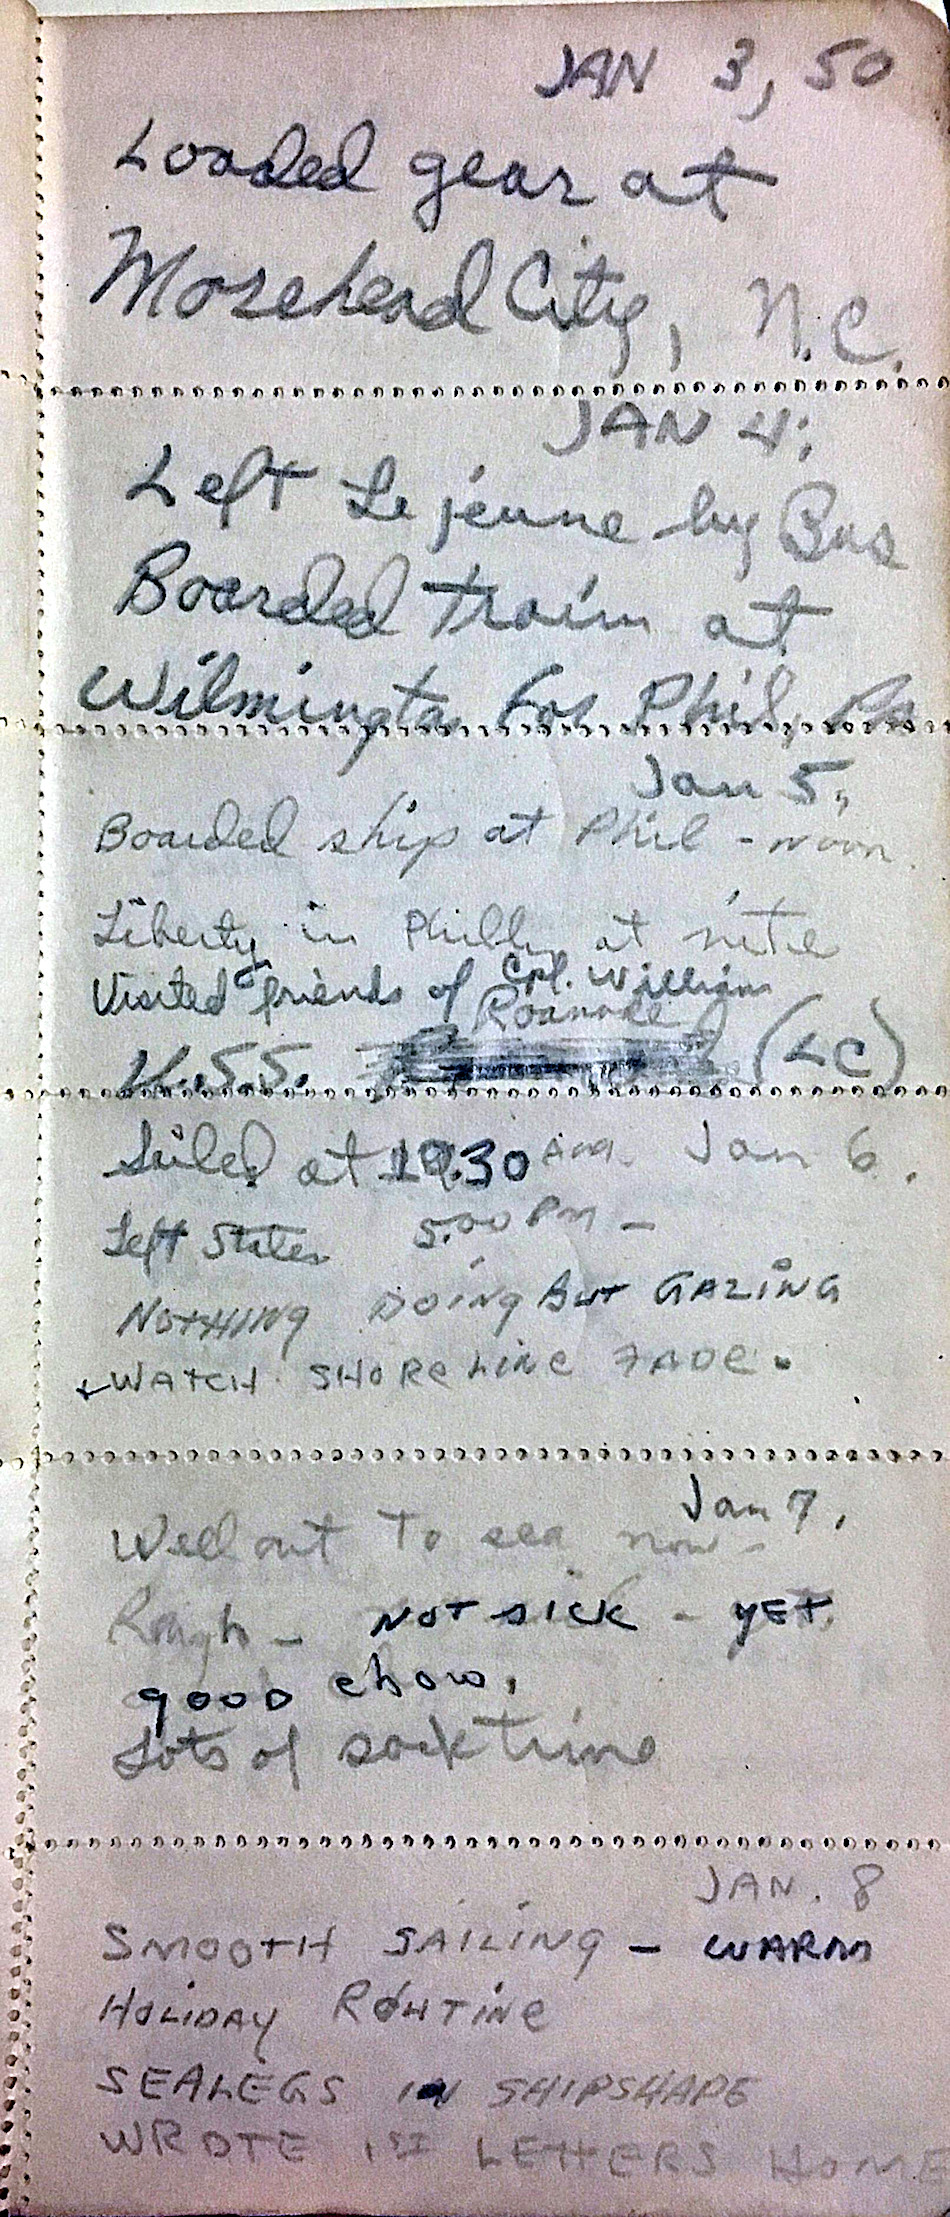 JAN 3, 50
Loaded gear at
Morehead City, N.C.
JAN 4,
Left Lejeune by Bus
Boarded train at
Wilmington for Phil, Pa
Jan 5,
Boarded ship at Phil - noon.
Liberty in Philly at nite
Visited friends of Cpl. William
Roanoke
U.S.S. (LC)
Sailed at Jan 6.
Left States 5:00 PM -
NOTHING DOING BUT GAZING
+ WATCH SHORELINE FADE.
Jan 7,
Well out to sea now -
Rough - NOT SICK - YET.
good chow.
Lots of sack time
JAN. 8
SMOOTH SAILING - WARM
HOLIDAY ROUTINE
SEALEGS IN SHIPSHAPE
WROTE 1ST LETTERS HOME